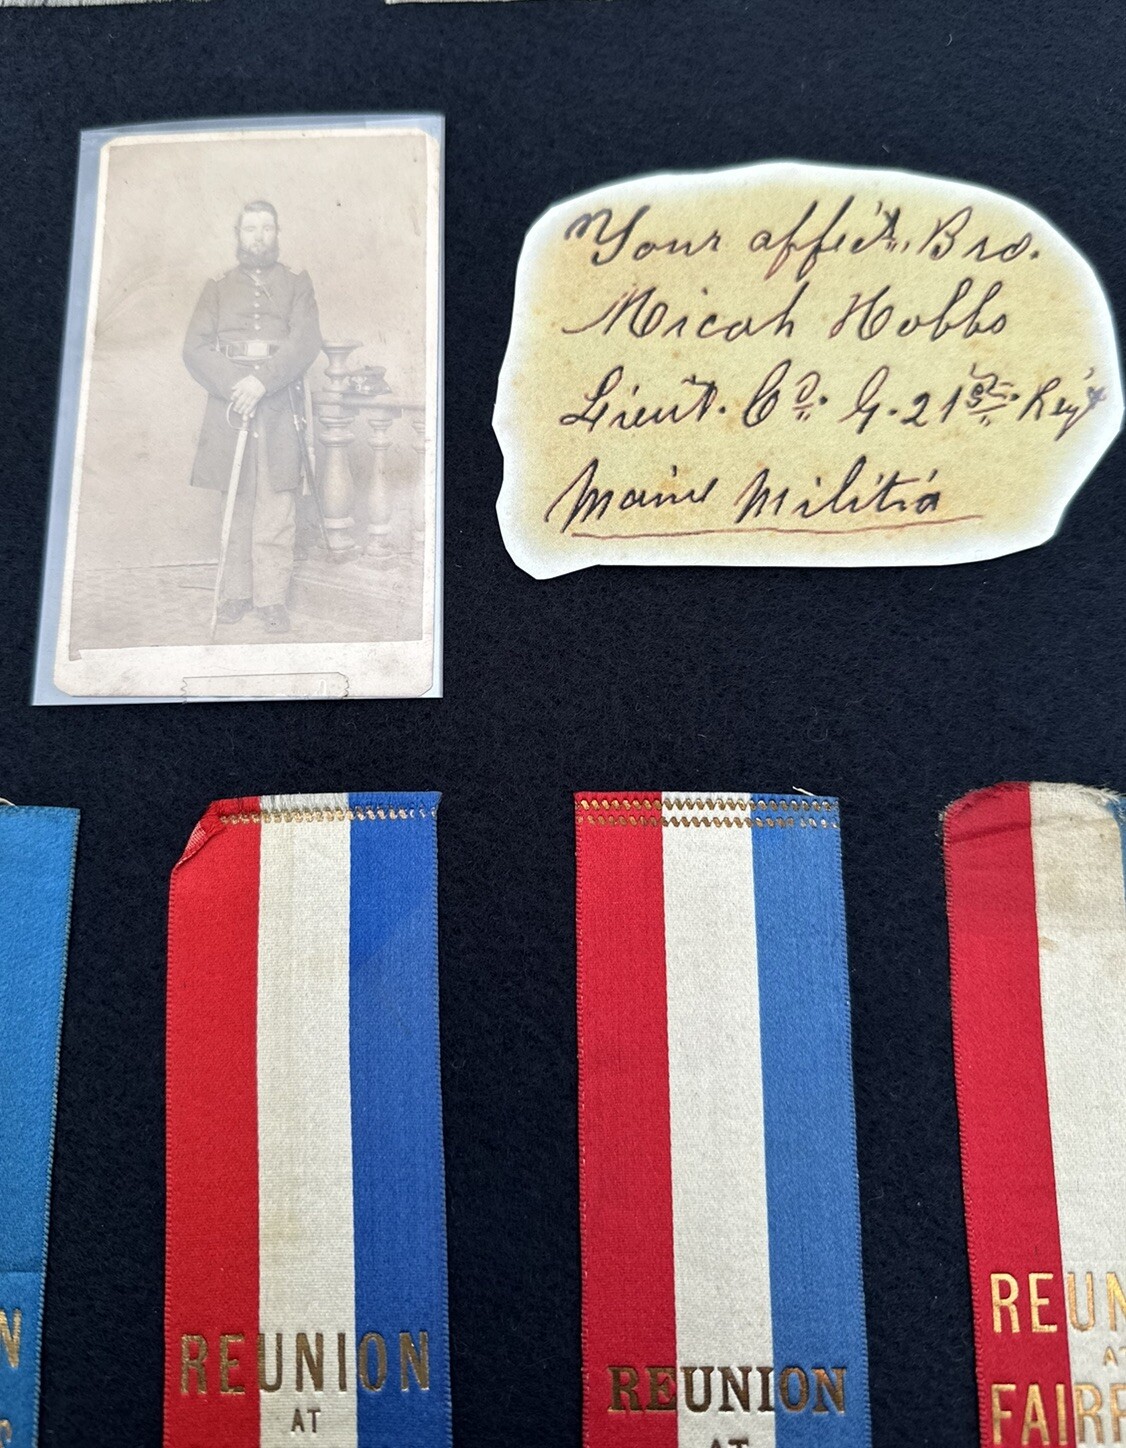 Your affect. Bro.
Micah Hobbs
Lieut. Co. G. 21st Regt
Maine Militia
REUNION
AT
REUNION
AT
REUN
AT
FAIRF
N